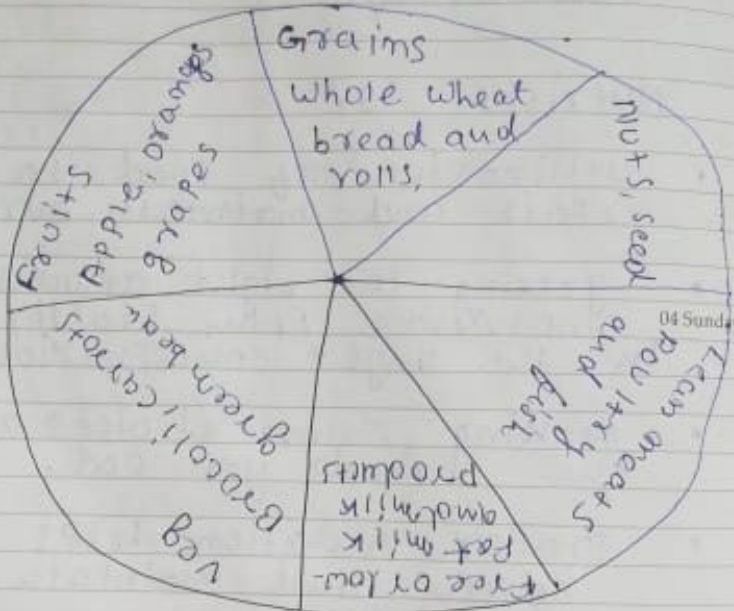 Grains
Whole wheat
bread and
rolls,
Nuts, seed
04 Sund
Lean meats
poultry
and fish
Free or low-
Fat milk
and milk
products
veg
Brocoli, carrots
green bean
Fruits
Apple, oranges
grapes